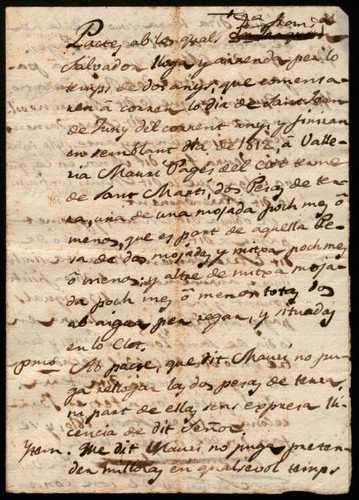 Pactes ab los quals
Salvador lloga y arrenda per lo
temps de dos anys, que comensa-
ran á correr lo dia de Sant Joan
de Juny del corrent any, y finiran
en semblant dia de 1812, á Valle-
ria Mauri Pagès, del citt terme
de Sant Martí, dos Pesas de ter-
ra, una de una mojada poch mes ó
menos, que es part de aquella Pe-
sa de dos mojadas y mitja poch mes
ó menos; y altre de mitja moja-
da poch mes ó menos totas dos
ab aigua per regar, y situadas
en lo Clot.
primo Ab pacte, que dit Mauri no pu-
ga rellogar las dos pesas de terra,
ni part de ella, sens expresa lli-
cencia de dit Señor
Ytem. Que dit Mauri no puga preten-
drer milloras en qualsevol temps